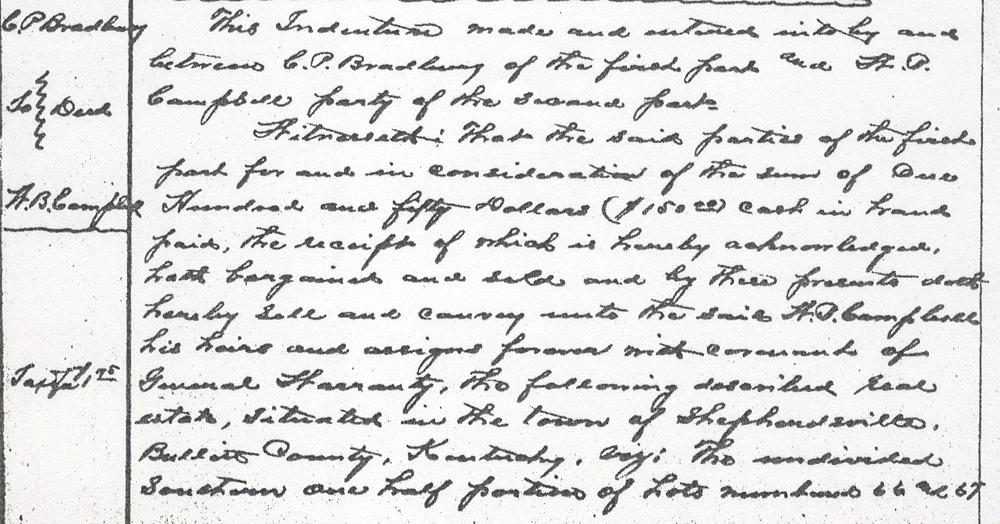 C. P. Bradbury
To Deed
H. B. Campbell
Tax $1.25
This Indenture made and entered into by and
between C. P. Bradbury of the first part and H. P.
Campbell party of the second part
Witnesseth: That the said parties of the first
part for and in consideration of the sum of One
Hundred and fifty Dollars ($150 00) cash in hand
paid, the receipt of which is hereby acknowledged,
hath bargained and sold and by these presents doth
hereby sell and convey unto the said H. P. Campbell
his heirs and assigns forever with covenants of
General Warranty, the following described real
estate, situated in the town of Shepherdsville,
Bullitt County, Kentucky, viz: The undivided
Southern one half portion of Lots numbered 66 and 67